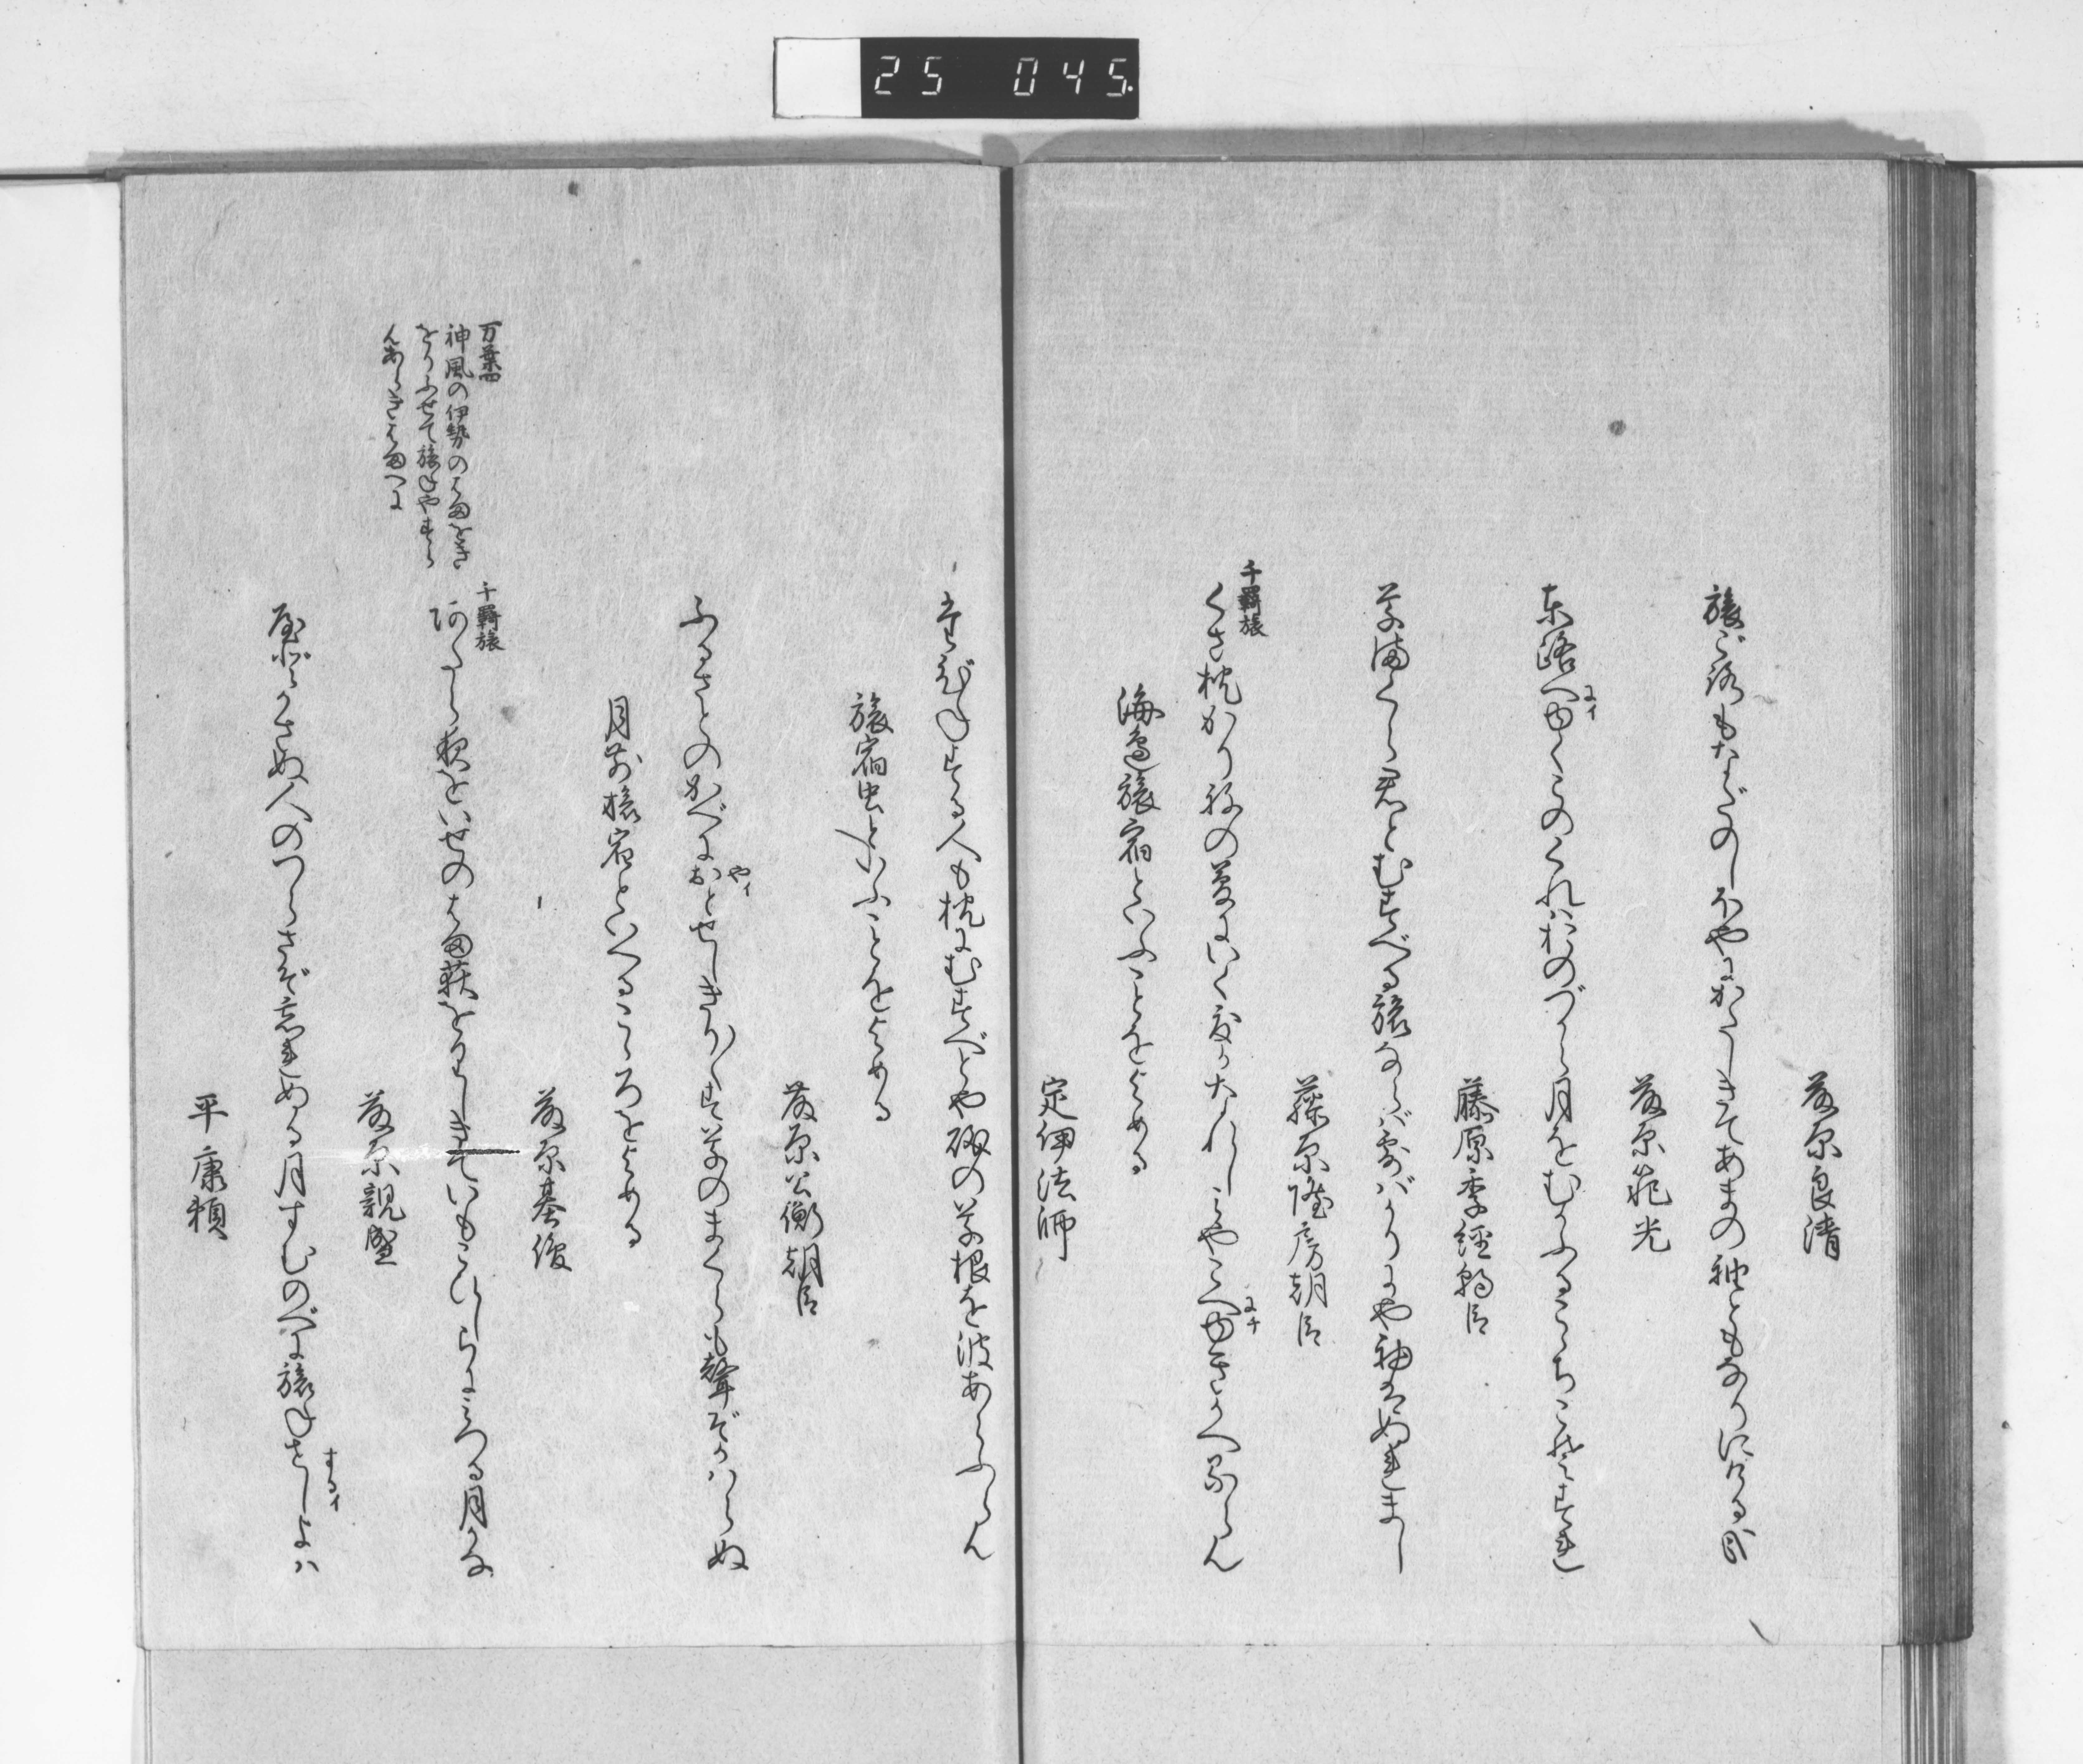 25 045
藤原良清
旅ごろもたびのしほやにかたしきてあまの袖ともなりにける哉
藤原範光
東路へゆくみのくれはおのづから月をむかふるこゝちこそすれ
にイ
藤原季経朝臣
草まくら君とむすべる旅ならば露ばかりにや袖はぬれまし
藤原隆房朝臣
千羇旅
くさ枕かりねの夢にいく度かなれしみやこへゆきかへるらん
にチ
海邊旅宿といふことをよめる
定伊法師
たびねする人も枕にむすべとや礒の草根を波あらふらん
旅宿虫といふことをよめる
藤原公衡朝臣
ふるさとのかべにおとせしきり〳〵す草のまくらも聲ぞかはらぬ
やイ
月前旅宿といへるこゝろをよめる
藤原基俊
千羇旅
あたら夜をいせのはま荻をりしきていもこひしらにみつる月かな
万葉四
神風の伊勢のはまをぎ
をりふせて旅ねやすら
んあらきはまべに
藤原親盛
みやこ人のつらさぞ忘れぬる月すむのべに旅ねせしよは
するイ
平康頼